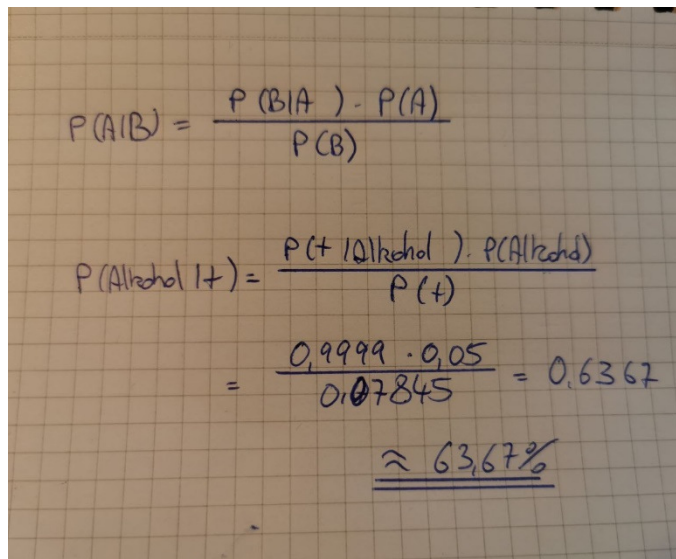 P(A|B) = P(B|A) · P(A) / P(B)
P(Alkohol|+) = P(+|Alkohol) · P(Alkohol) / P(+)
= 0,9999 · 0,05 / 0,07845 = 0,6367
≈ 63,67%